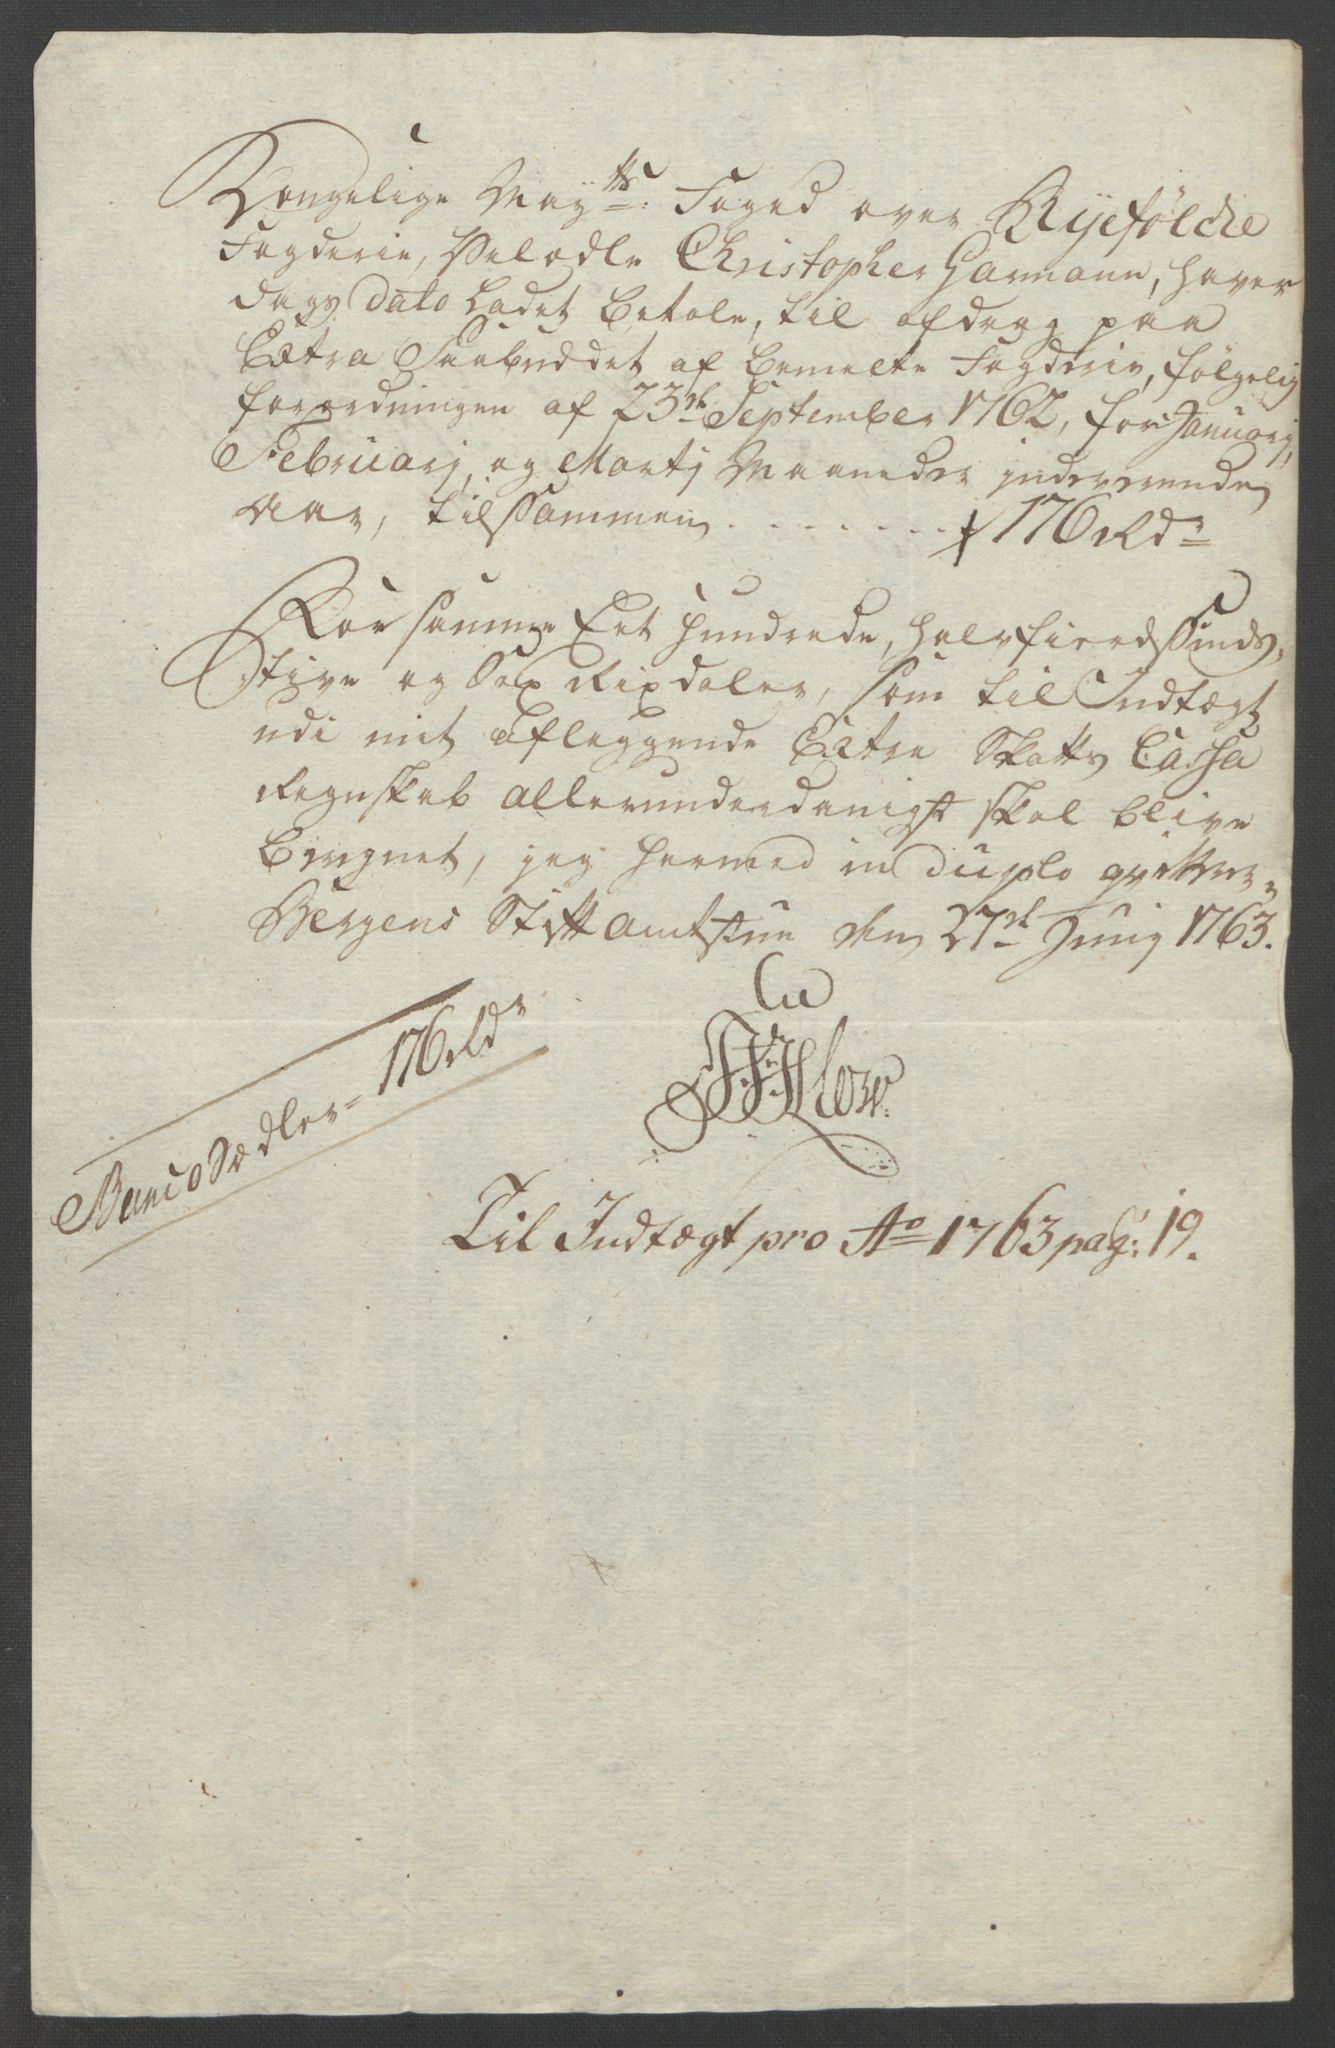 Kongelige May<sup>tts</sup>: Foged over Ryefölcke
Fogderie, Velædle Christopher Garmann, haver
dags dato Ladet betale, til afdrag paa
Extra Paabuddet af bemelte Fogderie, følgelig
forordningen af 23<sup>de</sup> September 1762, for Januarj,
Februarj, og Martj Maaneder indeværende
Aar, tilsammen . . . . . . . . 176 Rd<sup>r</sup>
For samme Eet hundrede, halvfierdsinds,
tive og Sex Rixdaler, som til Indtægt
udi mit aflæggende Extra Skatts Cassa
Regnskab allerunderdanigst skal blive
beregnet, jeg hermed in duplo qvitterer
Bergens Stiftamtstue den 27<sup>de</sup> Junij 1763.
Banco Sædler = 176 Rd<sup>r</sup>
Til Indtægt pro A<sup>o</sup> 1763 pag: 19.